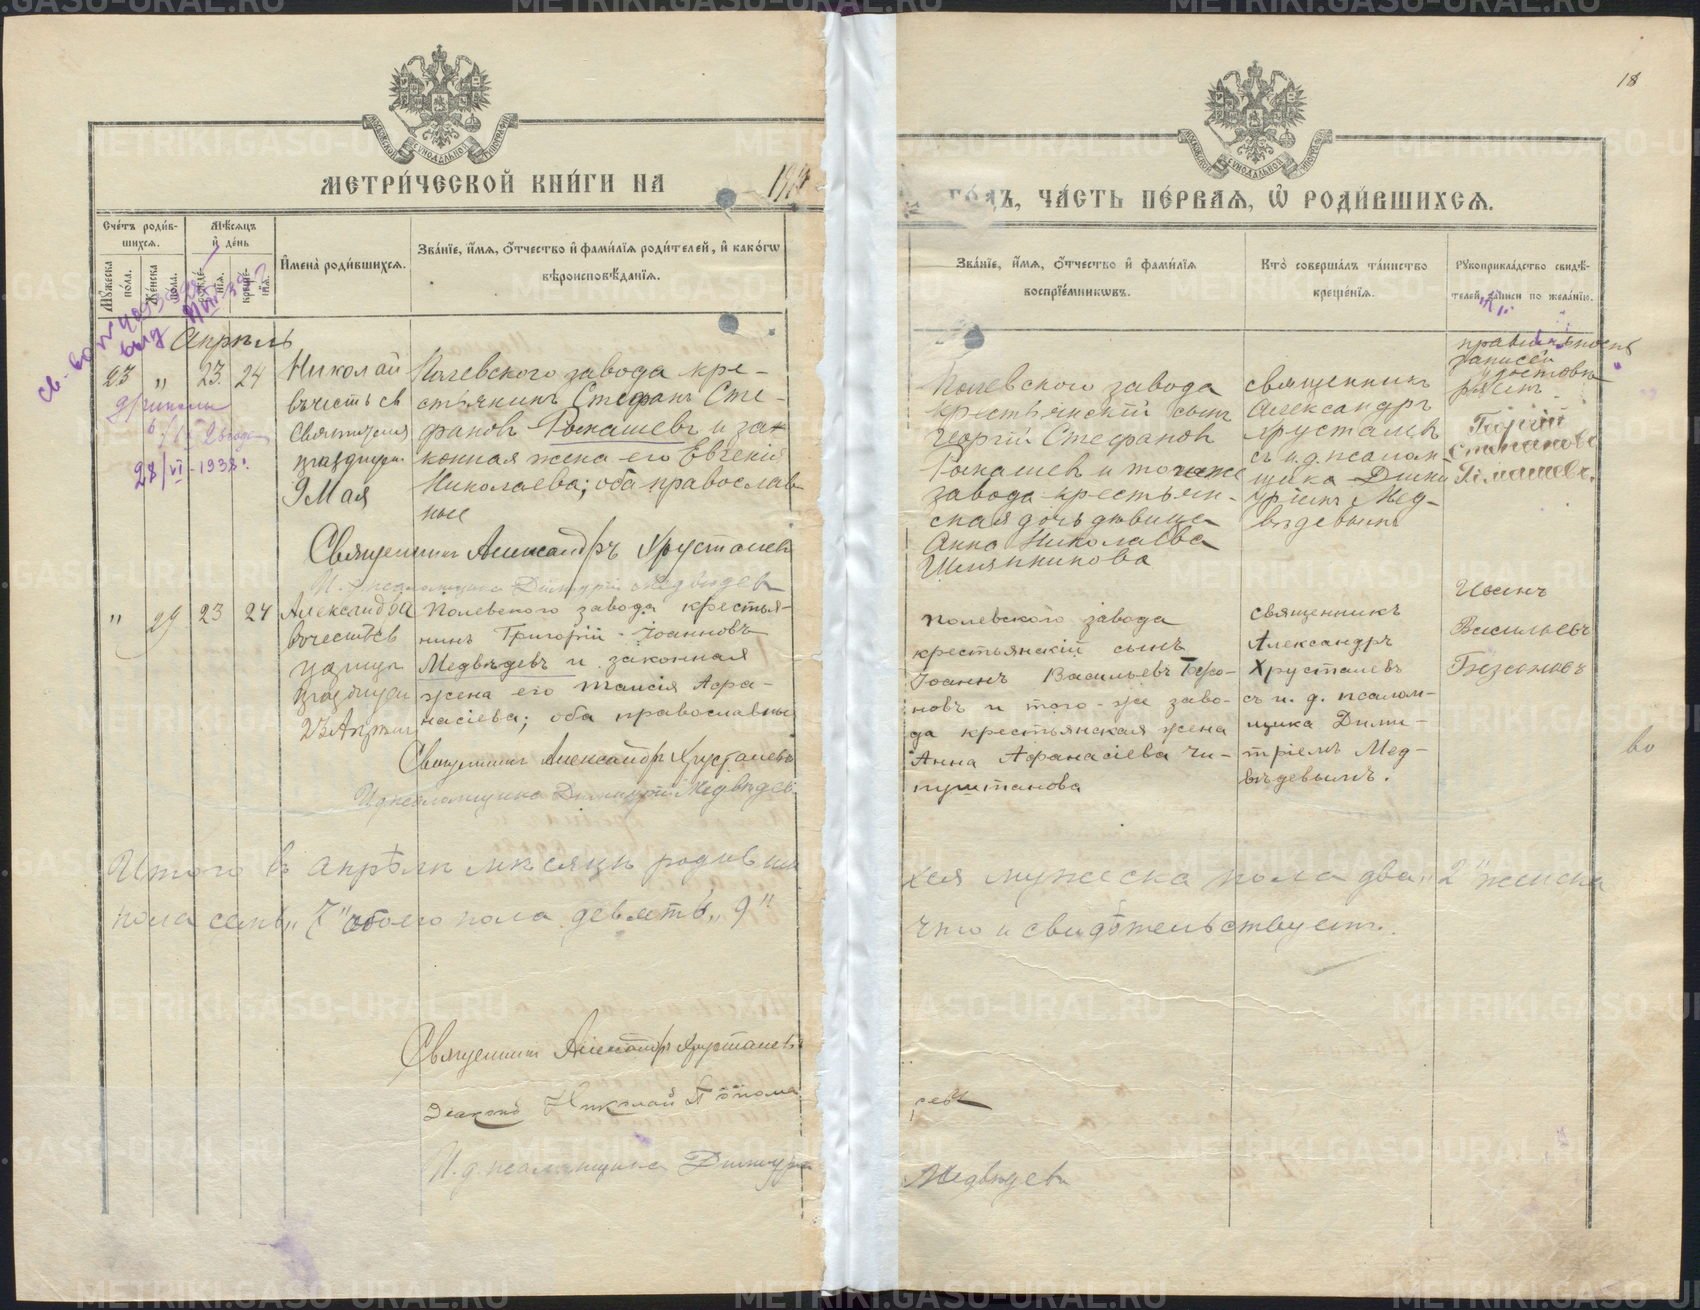 18
МЕТРИ́ЧЕСКОЙ КНИ́ГИ НА
ГО́ДЪ, ЧА́СТЬ ПЕ́РВАЯ, Ѽ РОДИ́ВШИХСЯ.
Сче́тъ роди́в-
шихся.
Мѣ́сяцъ
и҆ де́нь
Му́жеска
по́ла.
Же́нска
по́ла.
И҆мена̀ роди́вшихся.
Зва́нїе, и҆́мя, ѻ҆́тчество и҆ фами́лїя роди́телей, и҆ како́гѡ
вѣроисповѣ́данїя.
Зва́нїе, и҆́мя, ѻ҆́тчество и҆ фами́лїя
воспрїе́мникѡвъ.
Кто̀ соверша́лъ та́инство
креще́нїя.
Рꙋкоприкла́дство свидѣ́-
телей за́писи по жела́нїю.
Апрѣль
23 " 23 24
Николай
въ честь св
Святителя
празднуем.
9 Мая
Полевского завода кре-
стьянинъ Стефанъ Сте-
фановъ и за-
конная жена его Евгенія
Николаева; оба православ
ные
Священникъ Александръ Хрусталевъ
И. д. псаломщика Димитрій Медвѣдевъ
28/VI-1938г.
Полевского завода
крестьянскій сынъ
Георгій Стефановъ
и того же
завода крестьян-
ская дочь дѣвица
Анна Николаева
священникъ
Александръ
Хрусталевъ
съ и. д. псалом-
щика Дими
тріемъ Мед-
вѣдевымъ
записи
Георгій
" 29 23 24
Александра
въ честь св
царицы
празднуем
23 Апрѣля
Полевского завода крестья-
нинъ Григорій Іоанновъ
Медвѣдевъ и законная
жена его Таисія Афа-
насіева; оба православны
Священникъ Александръ Хрусталевъ
И. д. псаломщика Димитрій Медвѣдев
Полевского завода
крестьянскій сынъ
Іоаннъ Васильевъ
новъ и того-же заво-
да крестьянская жена
Анна Афанасіева Чи-
пуштанова
священникъ
Александръ
Хрусталевъ
съ и. д. псалом-
щика Дими-
тріемъ Мед-
вѣдевымъ.
Иванъ
Васильевъ
Итого въ апрѣлѣ мѣсяцѣ родивши
хся мужеска пола два „2" женска
пола семь „7" обоего пола девять „9".
что и свидѣтельствуемъ.
Священникъ Александръ Хрусталевъ
Діаконъ Николай
И. д. псаломщика Димитрій
Медвѣдевъ
METRIKI.GASO-URAL.RU